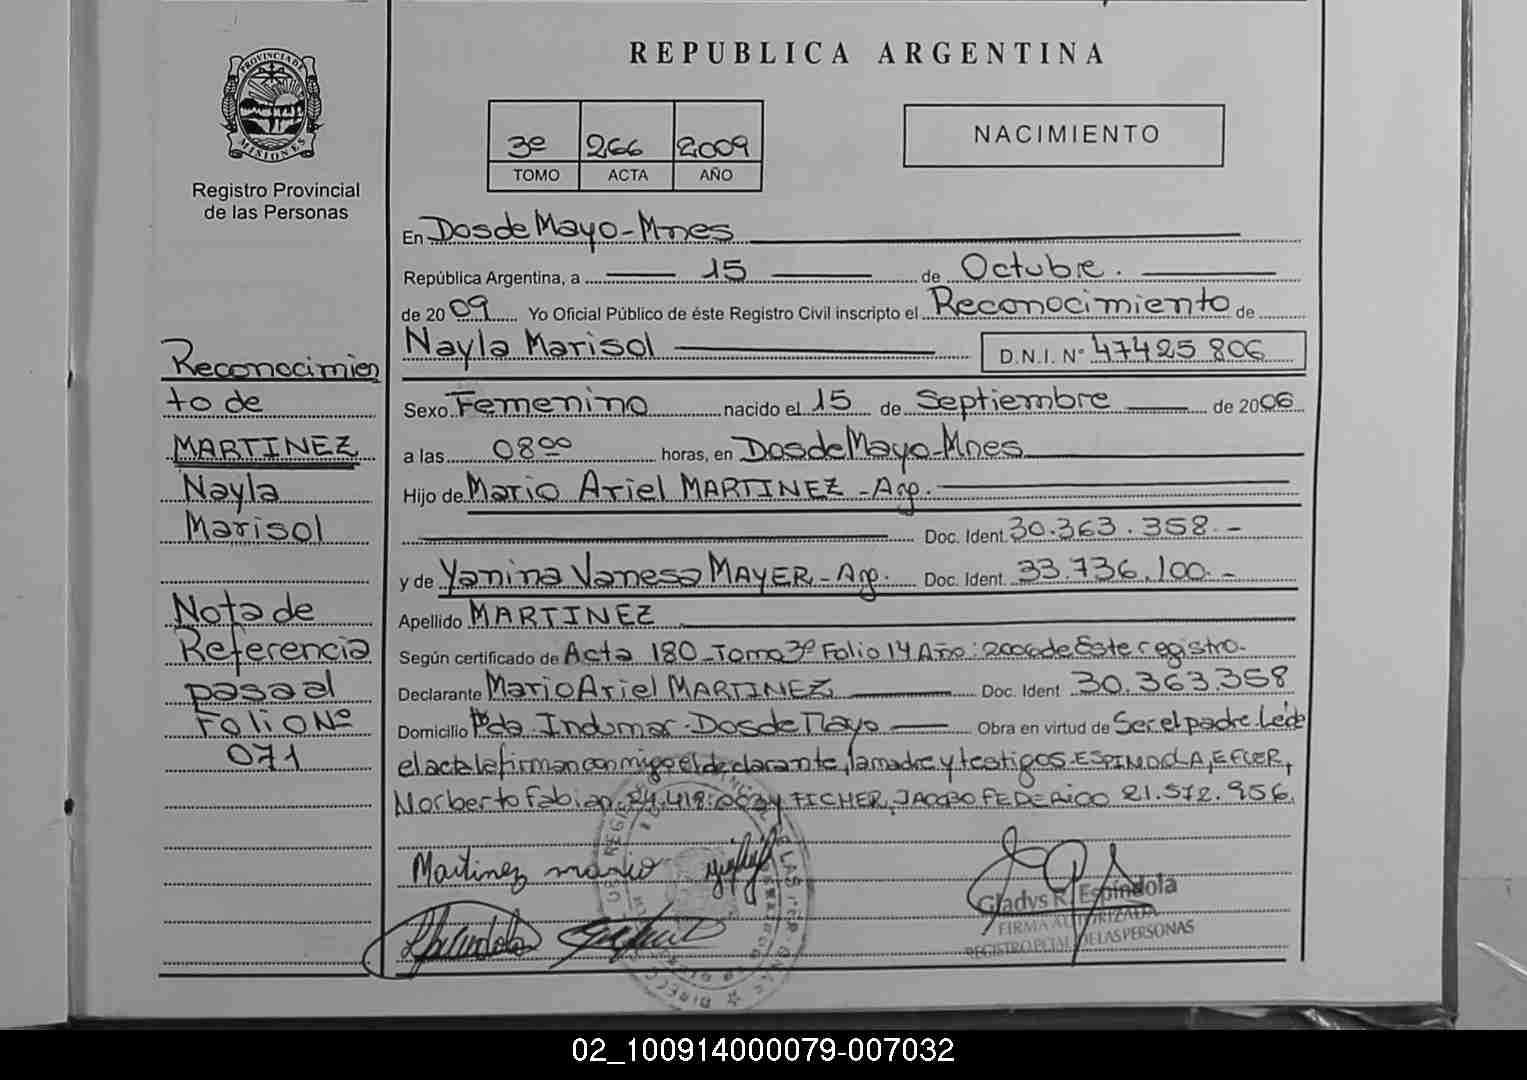 PROVINCIA DE
MISIONES
Registro Provincial
de las Personas
Reconocimien
to de
MARTINEZ
Nayla
Marisol
Nota de
Referencia
pasa al
Folio Nº
071
REPUBLICA ARGENTINA
3º 266 2009
TOMO ACTA AÑO
NACIMIENTO
En Dos de Mayo - Mnes
República Argentina, a 15 de Octubre.
de 2009 Yo Oficial Público de éste Registro Civil inscripto el Reconocimiento de
Nayla Marisol D.N.I. Nº 47425806
Sexo Femenino nacido el 15 de Septiembre de 2006
a las 08⁰⁰ horas, en Dos de Mayo - Mnes
Hijo de Mario Ariel MARTINEZ - Arg.
Doc. Ident. 30.363.358.-
y de Yanina Vanesa MAYER - Arg. Doc. Ident. 33.736.100.-
Apellido MARTINEZ
Según certificado de Acta 180 - Tomo 3º Folio 14 Año: 2006 de Este registro.
Declarante Mario Ariel MARTINEZ Doc. Ident 30.363.358
Domicilio Pda. Indumar - Dos de Mayo Obra en virtud de Ser el padre. Leída
el acta la firman conmigo el declarante, la madre y testigos ESPINDOLA,
Norberto Fabian y FICHER, JACOBO FEDERICO 21.572.956.
Martinez mario
Gladys R. Espindola
FIRMA AUTORIZADA
REGISTRO PCIAL. DE LAS PERSONAS
02_100914000079-007032